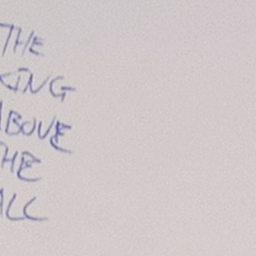 THE
KING
ABOVE
THE
ALL